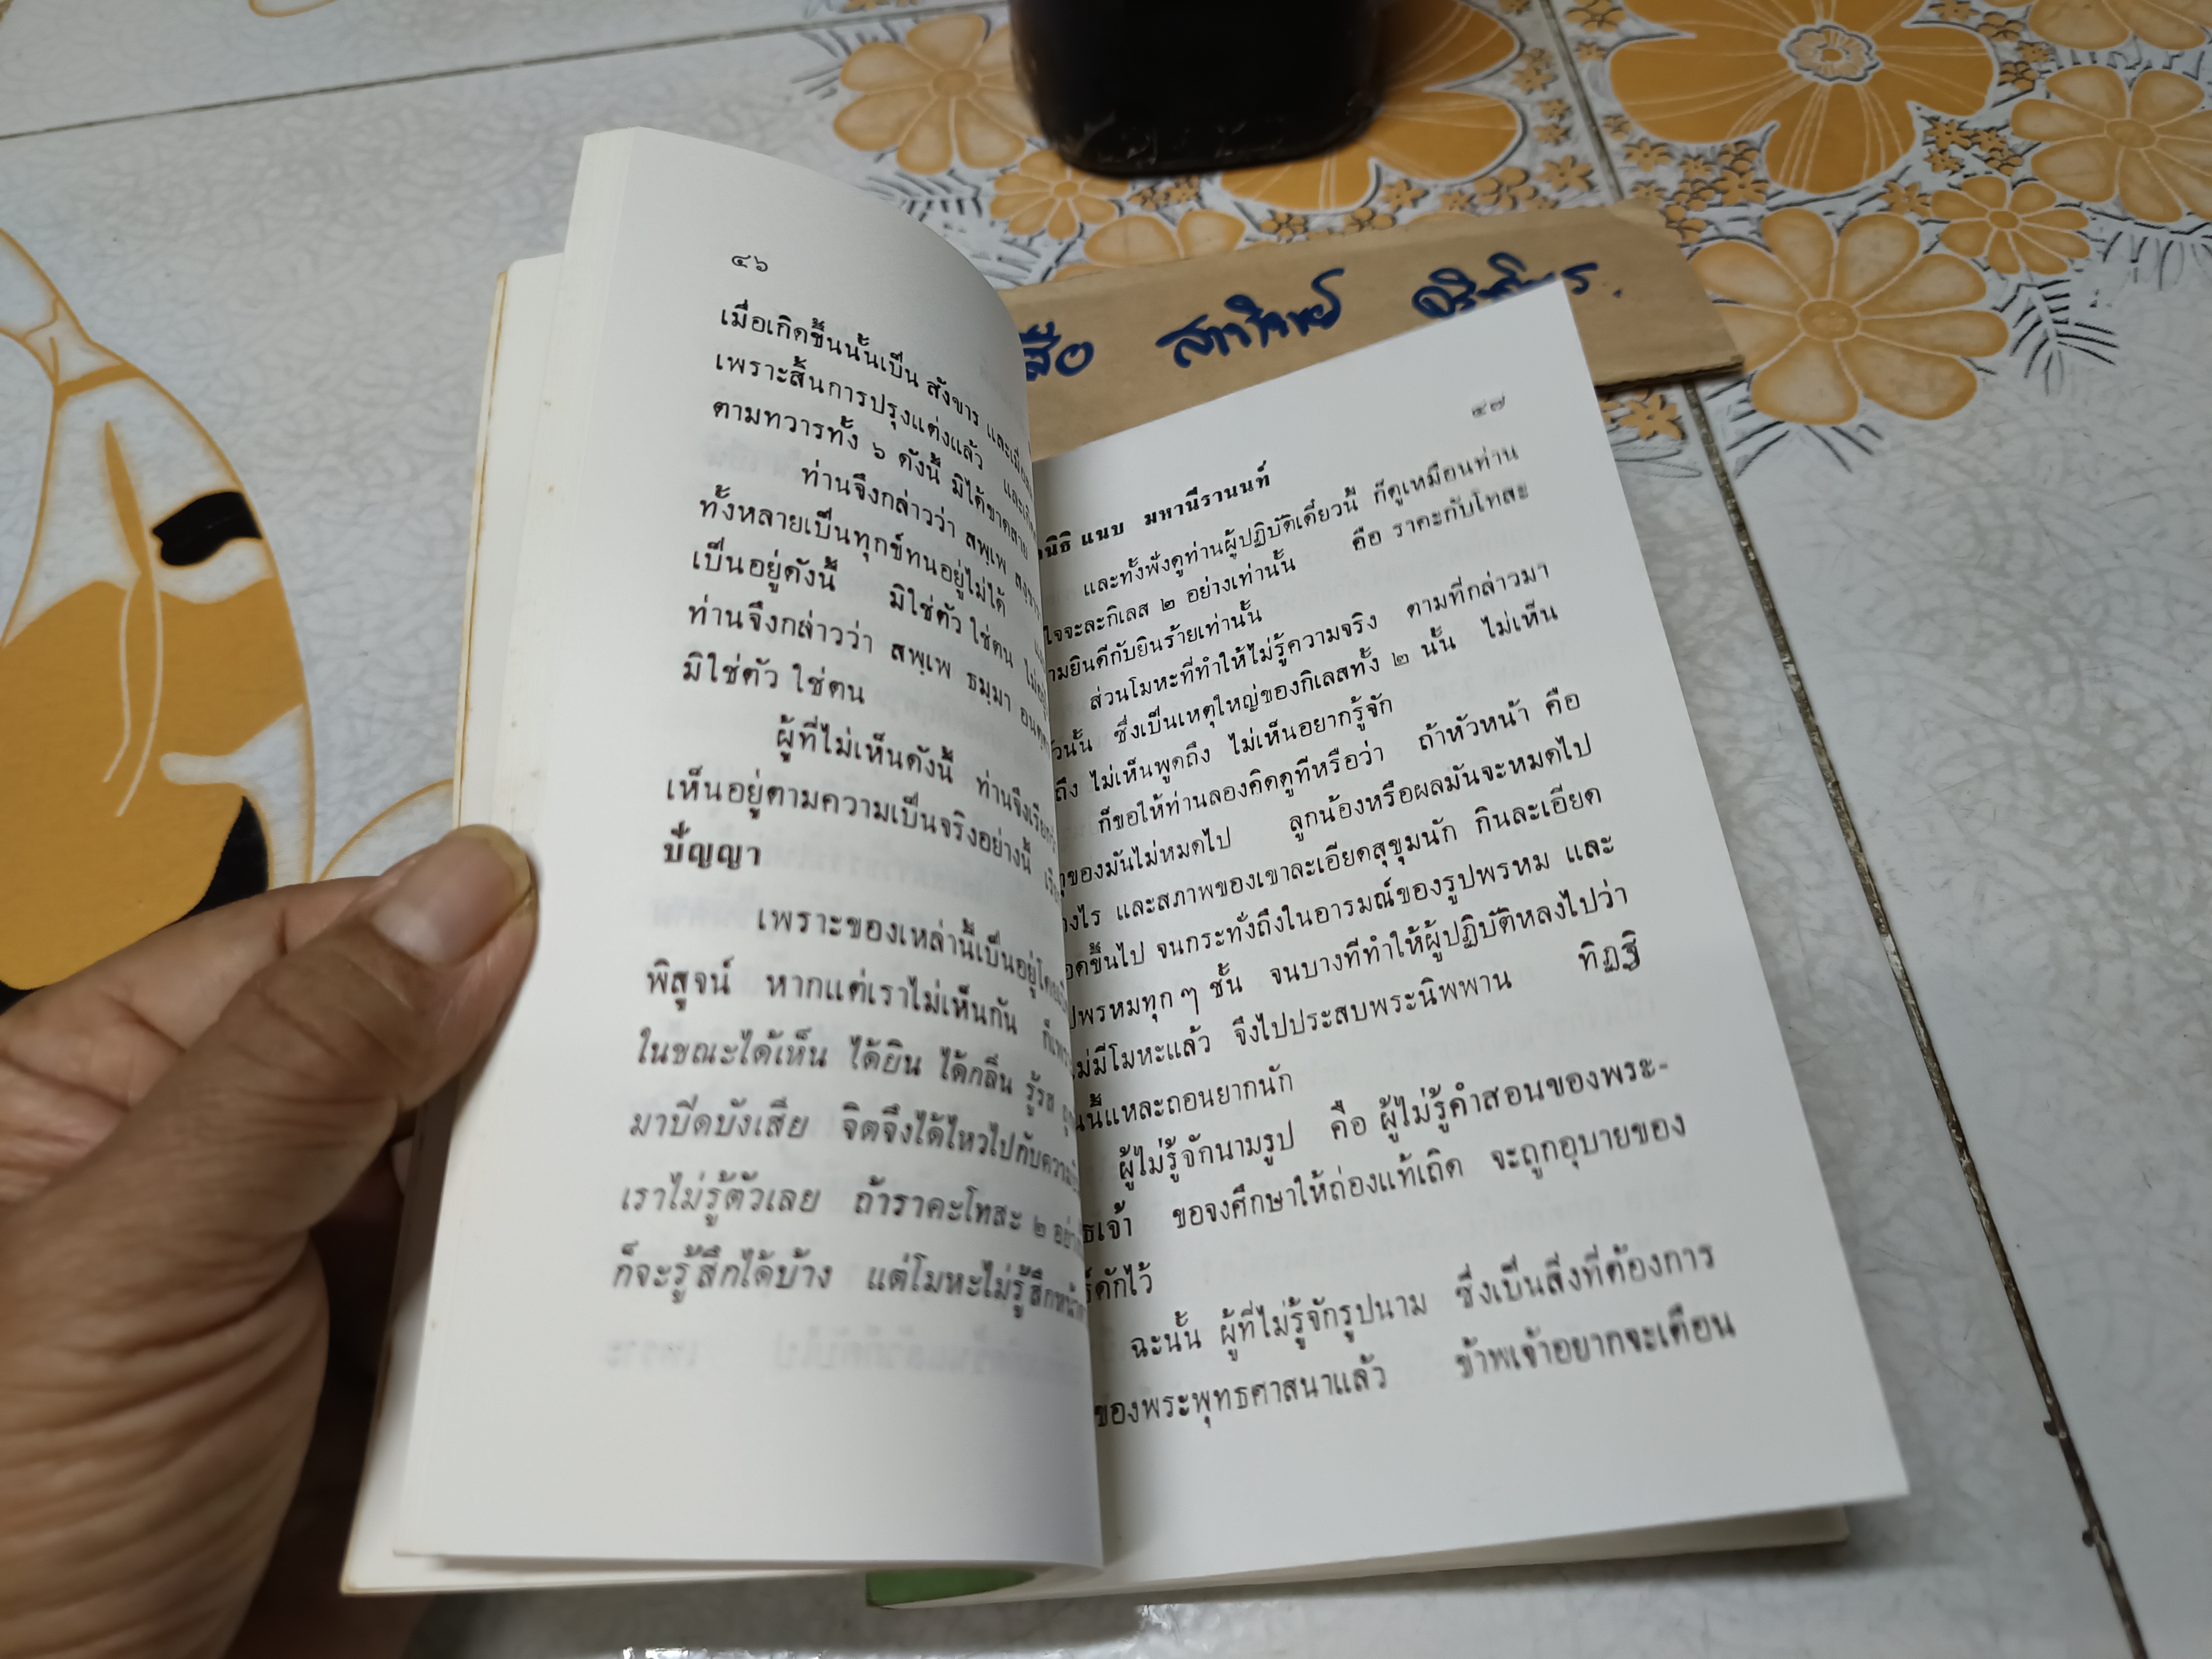 ๔๖
เมื่อเกิดขึ้นนั้นเป็น สังขาร และเมื่อ
เพราะสิ้นการปรุงแต่งแล้ว และเกิด
ตามทวารทั้ง ๖ ดังนี้ มิได้ขาดสาย
ท่านจึงกล่าวว่า สพฺเพ
ทั้งหลายเป็นทุกข์ทนอยู่ไม่ได้
เป็นอยู่ดังนี้ มิใช่ตัว ใช่ตน
ท่านจึงกล่าวว่า สพฺเพ ธมฺมา
มิใช่ตัว ใช่ตน
ผู้ที่ไม่เห็นดังนี้ ท่านจึงเรียก
เห็นอยู่ตามความเป็นจริงอย่างนี้
ปัญญา
เพราะของเหล่านี้เป็นอยู่
พิสูจน์ หากแต่เราไม่เห็นกัน
ในขณะได้เห็น ได้ยิน ได้กลิ่น รู้รส
มาปิดบังเสีย จิตจึงได้ไหวไปกับความ
เราไม่รู้ตัวเลย ถ้าราคะโทสะ ๒
ก็จะรู้สึกได้บ้าง แต่โมหะไม่รู้สึก
สือ
๔๗
แนบ มหานีรานนท์
และทั้งฟังดูท่านผู้ปฏิบัติเดี๋ยวนี้ ก็ดูเหมือนท่าน
ใจจะละกิเลส ๒ อย่างเท่านั้น คือ ราคะกับโทสะ
ยินดีกับยินร้ายเท่านั้น
ส่วนโมหะที่ทำให้ไม่รู้ความจริง ตามที่กล่าวมา
นั้น ซึ่งเป็นเหตุใหญ่ของกิเลสทั้ง ๒ นั้น ไม่เห็น
ไม่เห็นพูดถึง ไม่เห็นอยากรู้จัก
ก็ขอให้ท่านลองคิดดูทีหรือว่า ถ้าหัวหน้า คือ
ของมันไม่หมดไป ลูกน้องหรือผลมันจะหมดไป
และสภาพของเขาละเอียดสุขุมนัก กินละเอียด
ขึ้นไป จนกระทั่งถึงในอารมณ์ของรูปพรหม และ
พรหมทุก ๆ ชั้น จนบางทีทำให้ผู้ปฏิบัติหลงไปว่า
ไม่มีโมหะแล้ว จึงไปประสบพระนิพพาน ทิฏฐิ
นี้แหละถอนยากนัก
ผู้ไม่รู้จักนามรูป คือ ผู้ไม่รู้คำสอนของพระ-
เจ้า ขอจงศึกษาให้ถ่องแท้เถิด จะถูกอุบายของ
ดักไว้
ฉะนั้น ผู้ที่ไม่รู้จักรูปนาม ซึ่งเป็นสิ่งที่ต้องการ
ของพระพุทธศาสนาแล้ว ข้าพเจ้าอยากจะเตือน